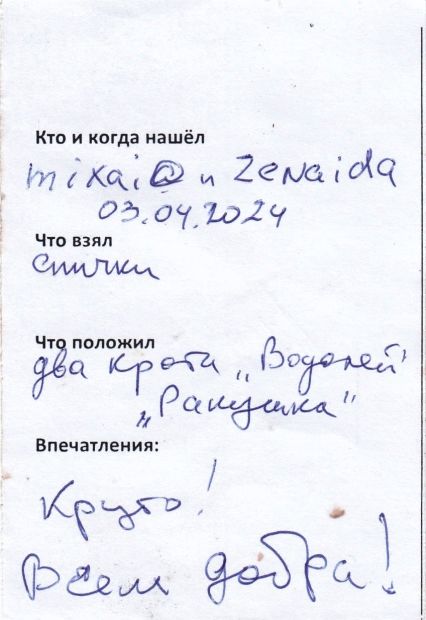 Кто и когда нашёл
mixai@ и zeNaida
03.04.2024
Что взял
спички
Что положил
два крота „Водолей"
„Ракушка"
Впечатления:
Круто!
Всем добра!